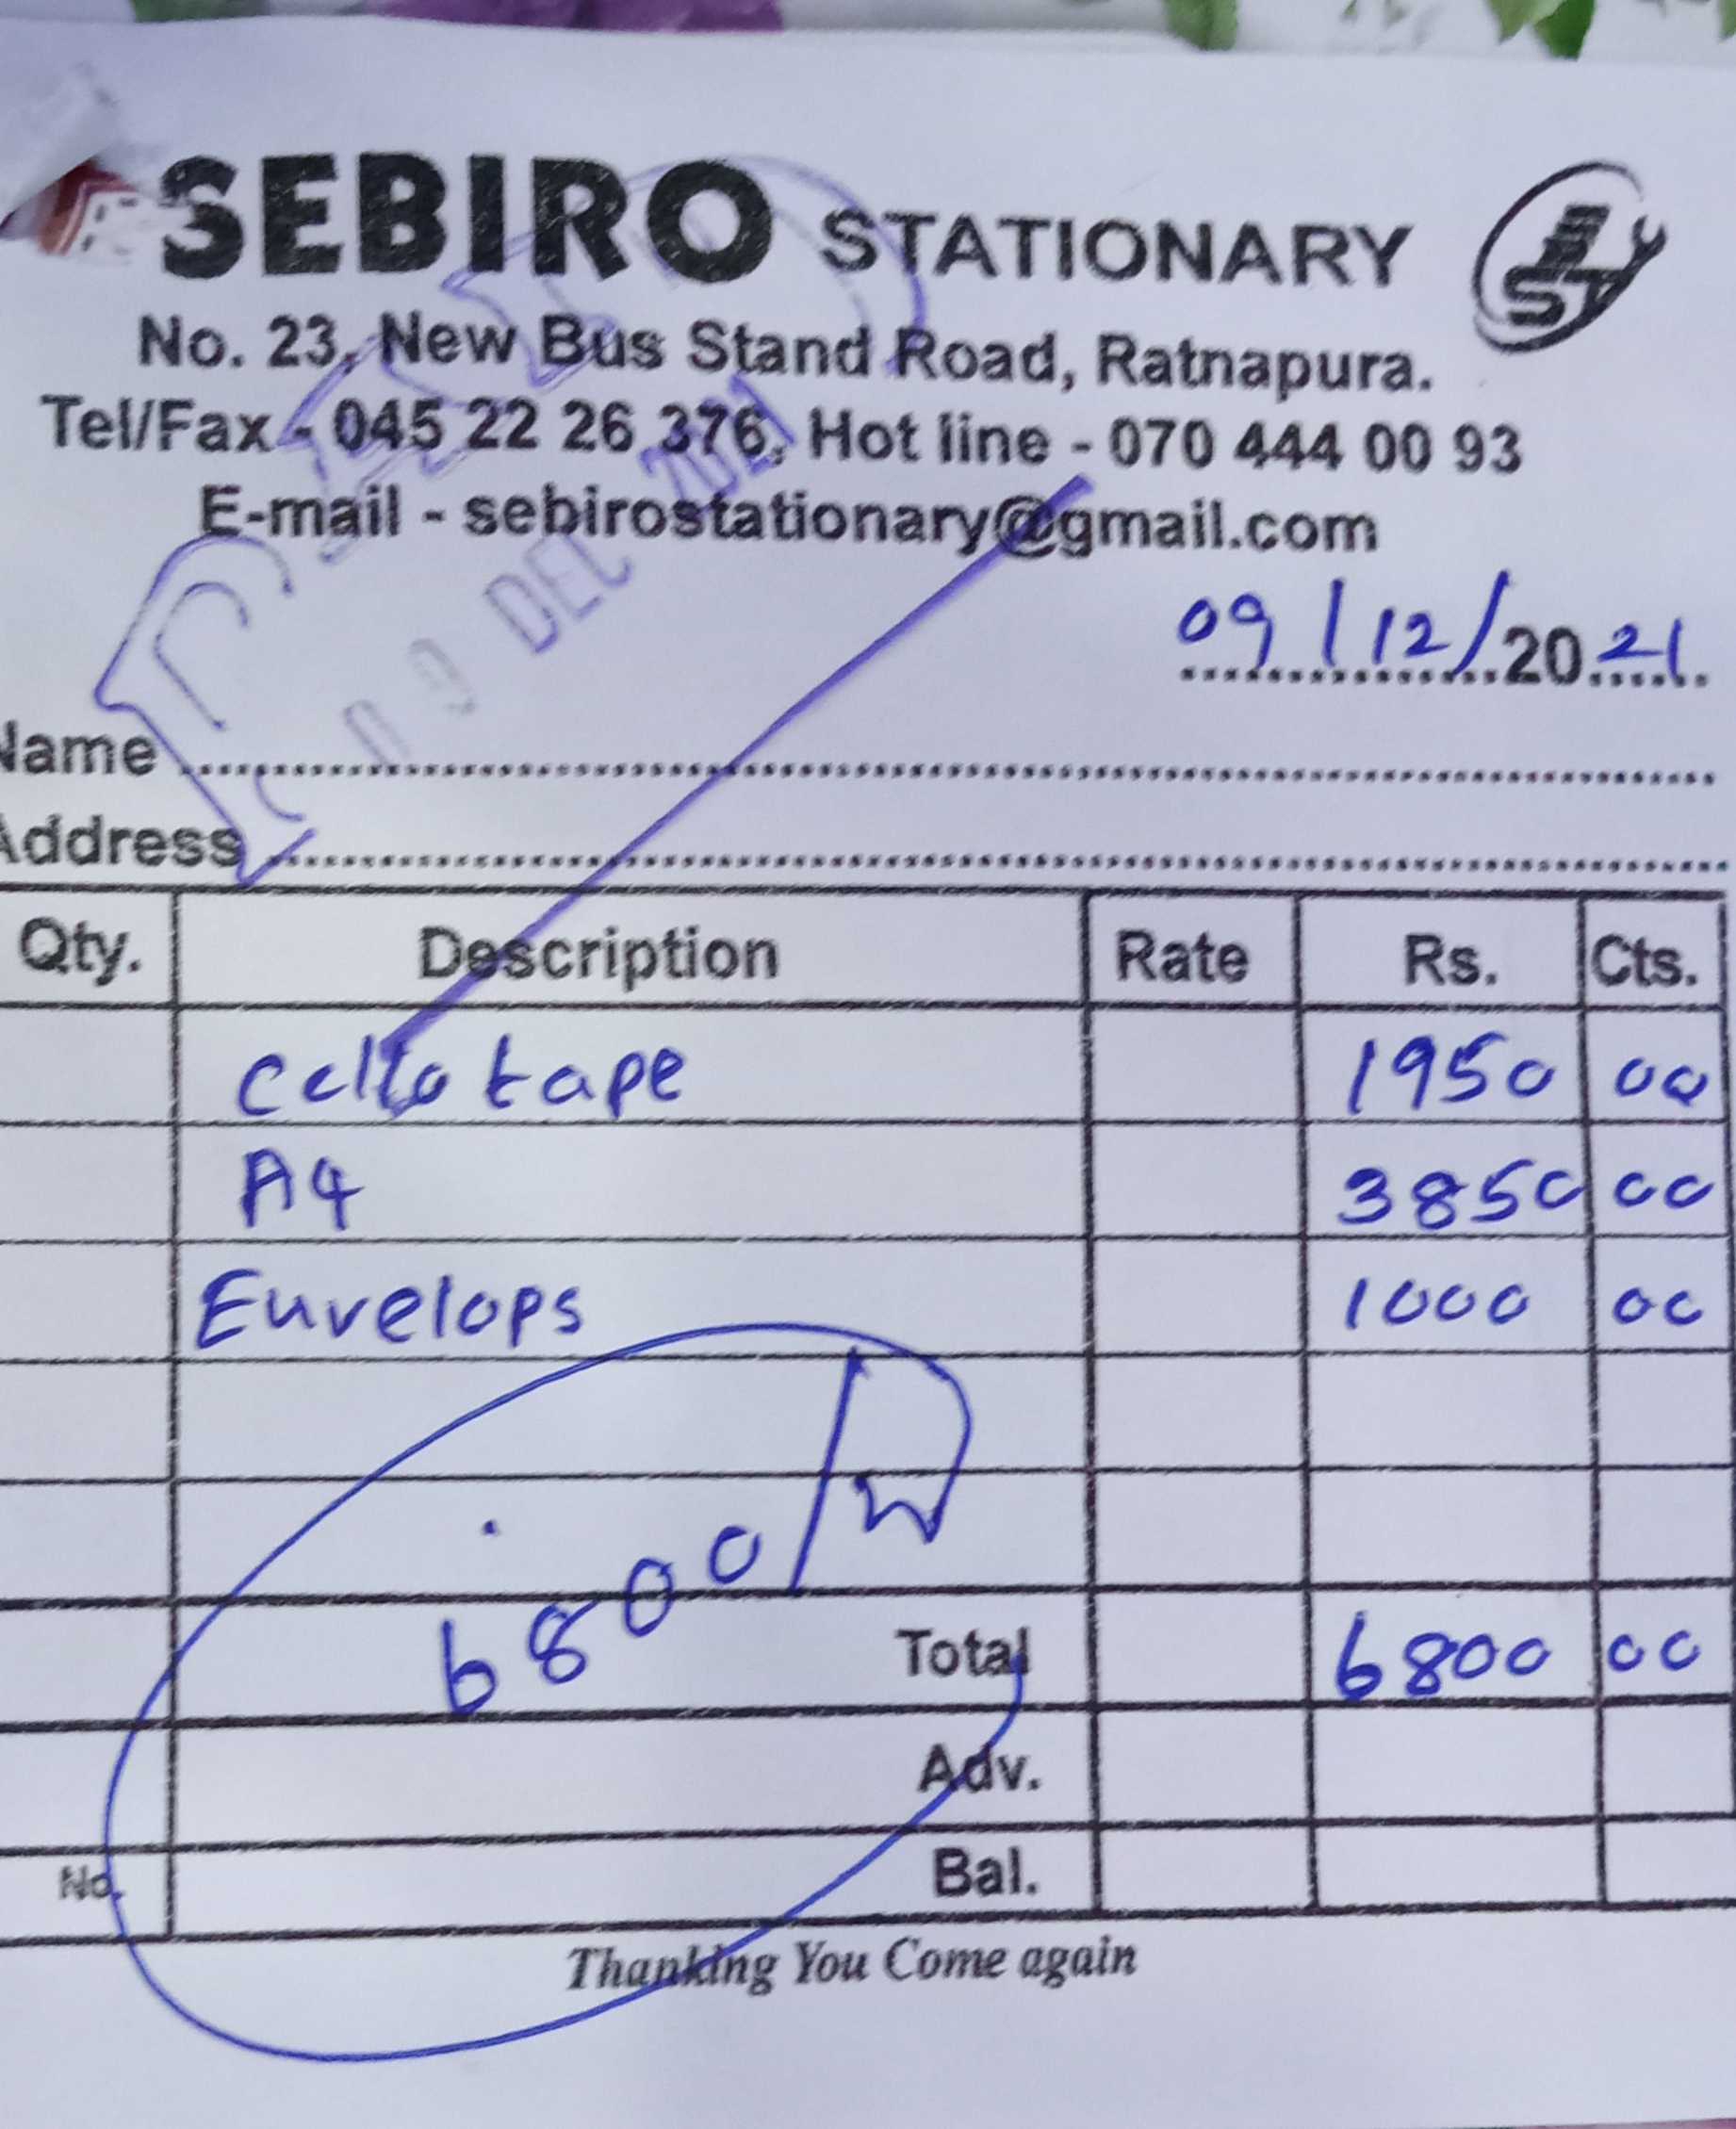 SEBIRO STATIONARY
No. 23, New Bus Stand Road, Ratnapura.
Tel/Fax - 045 22 26 376, Hot line - 070 444 00 93
E-mail - sebirostationary@gmail.com
09 DEC 2021
09/12/2021
Name
Address
Qty. Description Rate Rs. Cts.
Cello tape 1950 00
A4 3850 00
Envelops 1000 00
6800/
Total 6800 00
Adv.
No. Bal.
Thanking You Come again